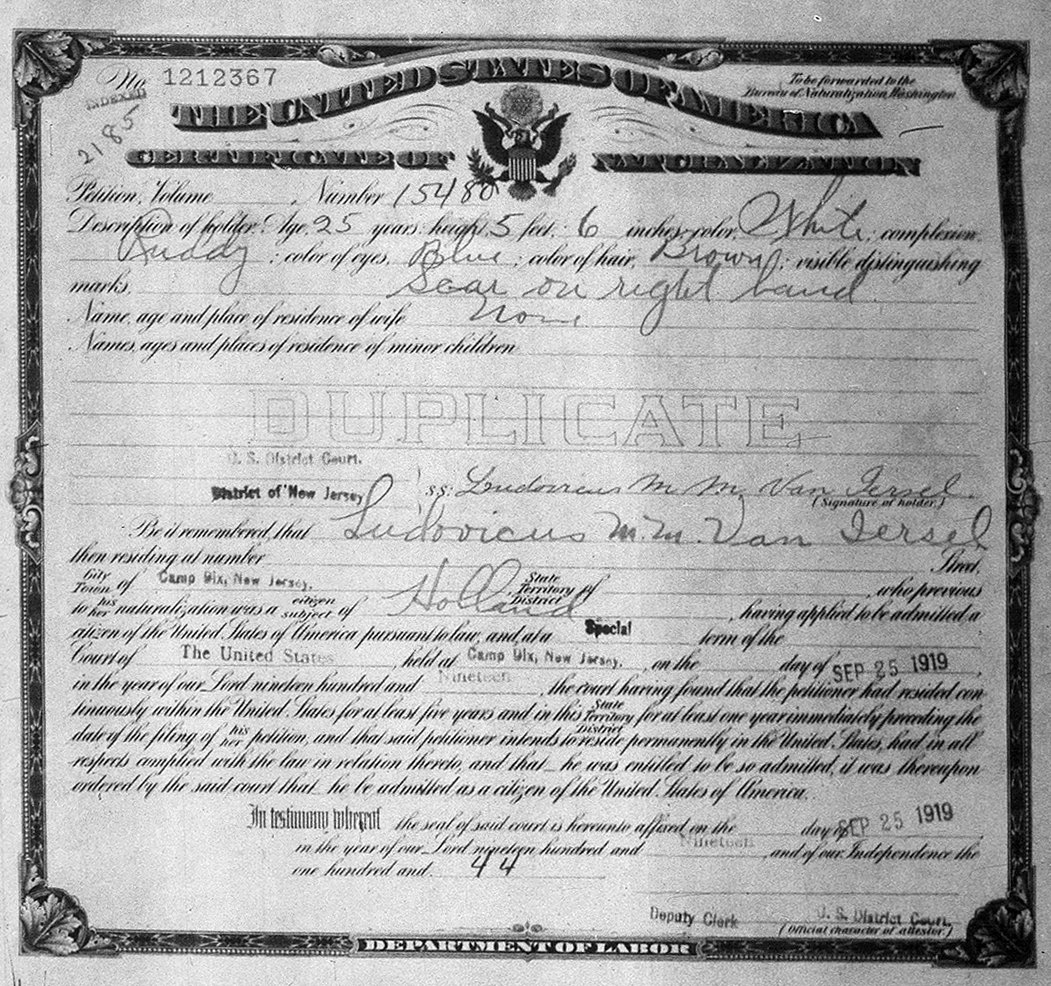 No. 1212367
To be forwarded to the
Bureau of Naturalization, Washington
INDEXED
2185
THE UNITED STATES OF AMERICA
CERTIFICATE OF NATURALIZATION
Petition, Volume Number 15480
Description of holder: Age, 25 years; height, 5 feet, 6 inches; color, White; complexion,
Ruddy; color of eyes, Blue; color of hair, Brown; visible distinguishing
marks, Scar on right hand.
Name, age and place of residence of wife None
Names, ages and places of residence of minor children
DUPLICATE
U. S. District Court.
District of New Jersey ss: Ludovicus M. M. Van Iersel.
(Signature of holder)
Be it remembered, that Ludovicus M.M. Van Iersel
then residing at number Street,
City Town of Camp Dix, New Jersey. State Territory District of , who previous
to his her naturalization was a citizen subject of Holland, having applied to be admitted a
citizen of the United States of America pursuant to law, and, at a Special term of the
Court of The United States, held at Camp Dix, New Jersey. , on the day of SEP 25 1919,
in the year of our Lord nineteen hundred and Nineteen, the court having found that the petitioner had resided con
tinuously within the United States for at least five years and in this State Territory District for at least one year immediately preceding the
date of the filing of his her petition, and that said petitioner intends to reside permanently in the United States, had in all
respects complied with the law in relation thereto, and that he was entitled to be so admitted, it was thereupon
ordered by the said court that he be admitted as a citizen of the United States of America.
In testimony whereof the seal of said court is hereunto affixed on the day of SEP 25 1919
in the year of our Lord nineteen hundred and Nineteen, and of our Independence the
one hundred and 44
Deputy Clerk U. S. District Court.
(Official character of attestor.)
DEPARTMENT OF LABOR